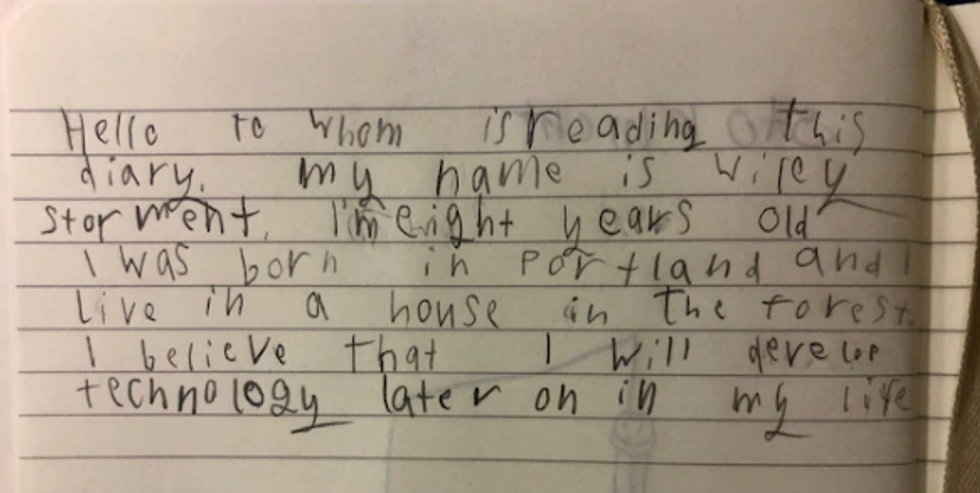 Hello to whom is reading this
diary. my name is wiley
storment. I'm eight years old
I was born in portland and I
Live in a house in the forest.
I believe that I will develop
technology later on in my life